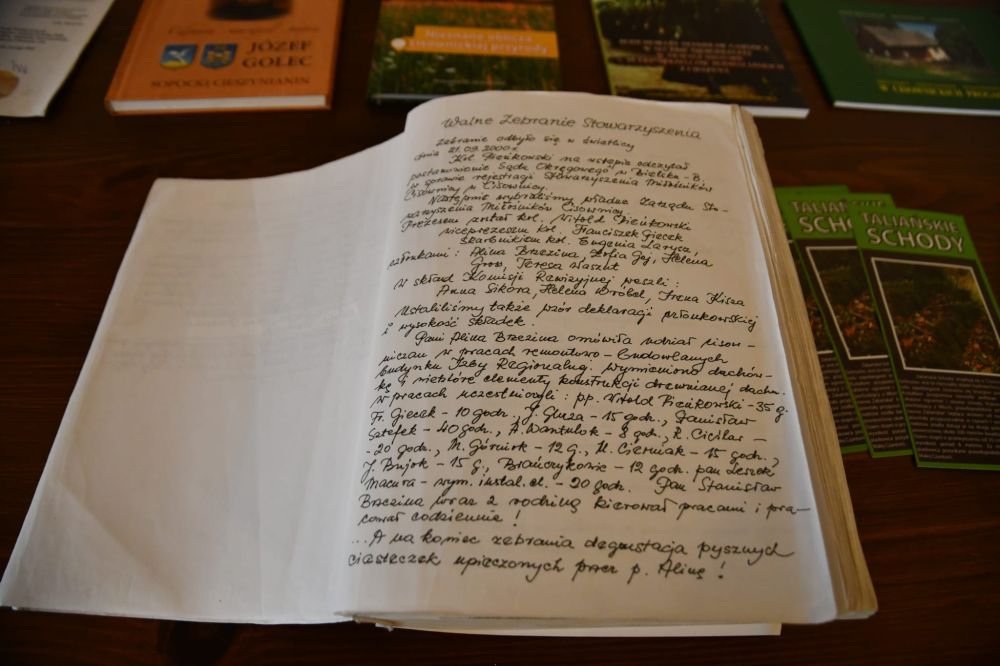 JÓZEF
GOLEC
SOPOCKI CIESZYNIANIN
Nieznane oblicza
cisownickiej przyrody
TALIAŃSKIE
SCHODY
TALIAŃSKIE
SCHODY
Walne Zebranie Stowarzyszenia
Zebranie odbyło się w świetlicy
dnia 21.09.2000 r.
Kol. Pieńkowski na wstępie odczytał
postanowienie Sądu Okręgowego w Bielsku-B.
w sprawie rejestracji Stowarzyszenia Miłośników
Cisownicy w Cisownicy.
Następnie wybraliśmy władze Zarządu Sto-
warzyszenia Miłośników Cisownicy.
Prezesem został kol. Witold Pieńkowski
viceprezesem kol. Franciszek Giecek
Skarbnikiem kol. Eugenia Zarysz
członkami: Alina Brzezina, Zofia Gej, Helena
Gross, Teresa Waszut
w skład Komisji Rewizyjnej weszli:
Anna Sikora, Helena Wróbel, Irena Kisza
Ustaliliśmy także wzór deklaracji członkowskiej
i wysokość składek.
Pani Alina Brzezina omówiła udział cisow-
niczan w pracach remontowo-budowlanych
budynku Izby Regionalnej. wymieniono dachów-
kę i niektóre elementy konstrukcji drewnianej dachu.
w pracach uczestniczyli: pp. Witold Pieńkowski - 35 g.
Fr. Giecek - 10 godz., J. Gluza - 15 godz., Stanisław
Sztefek - 40 godz., A. Wantulok - 8 godz., R. Cieślar -
- 20 godz., M. Górniok - 12 g., M. Cierniak - 15 godz.,
J. Bujok - 15 g., Brańczykowie - 12 godz. pan Leszek
Macura - wym. instal. el. - 20 godz. Pan Stanisław
Brzezina wraz z rodziną kierował pracami i pra-
cował codziennie!
...A na koniec zebrania degustacja pysznych
ciasteczek upieczonych przez p. Alinę!